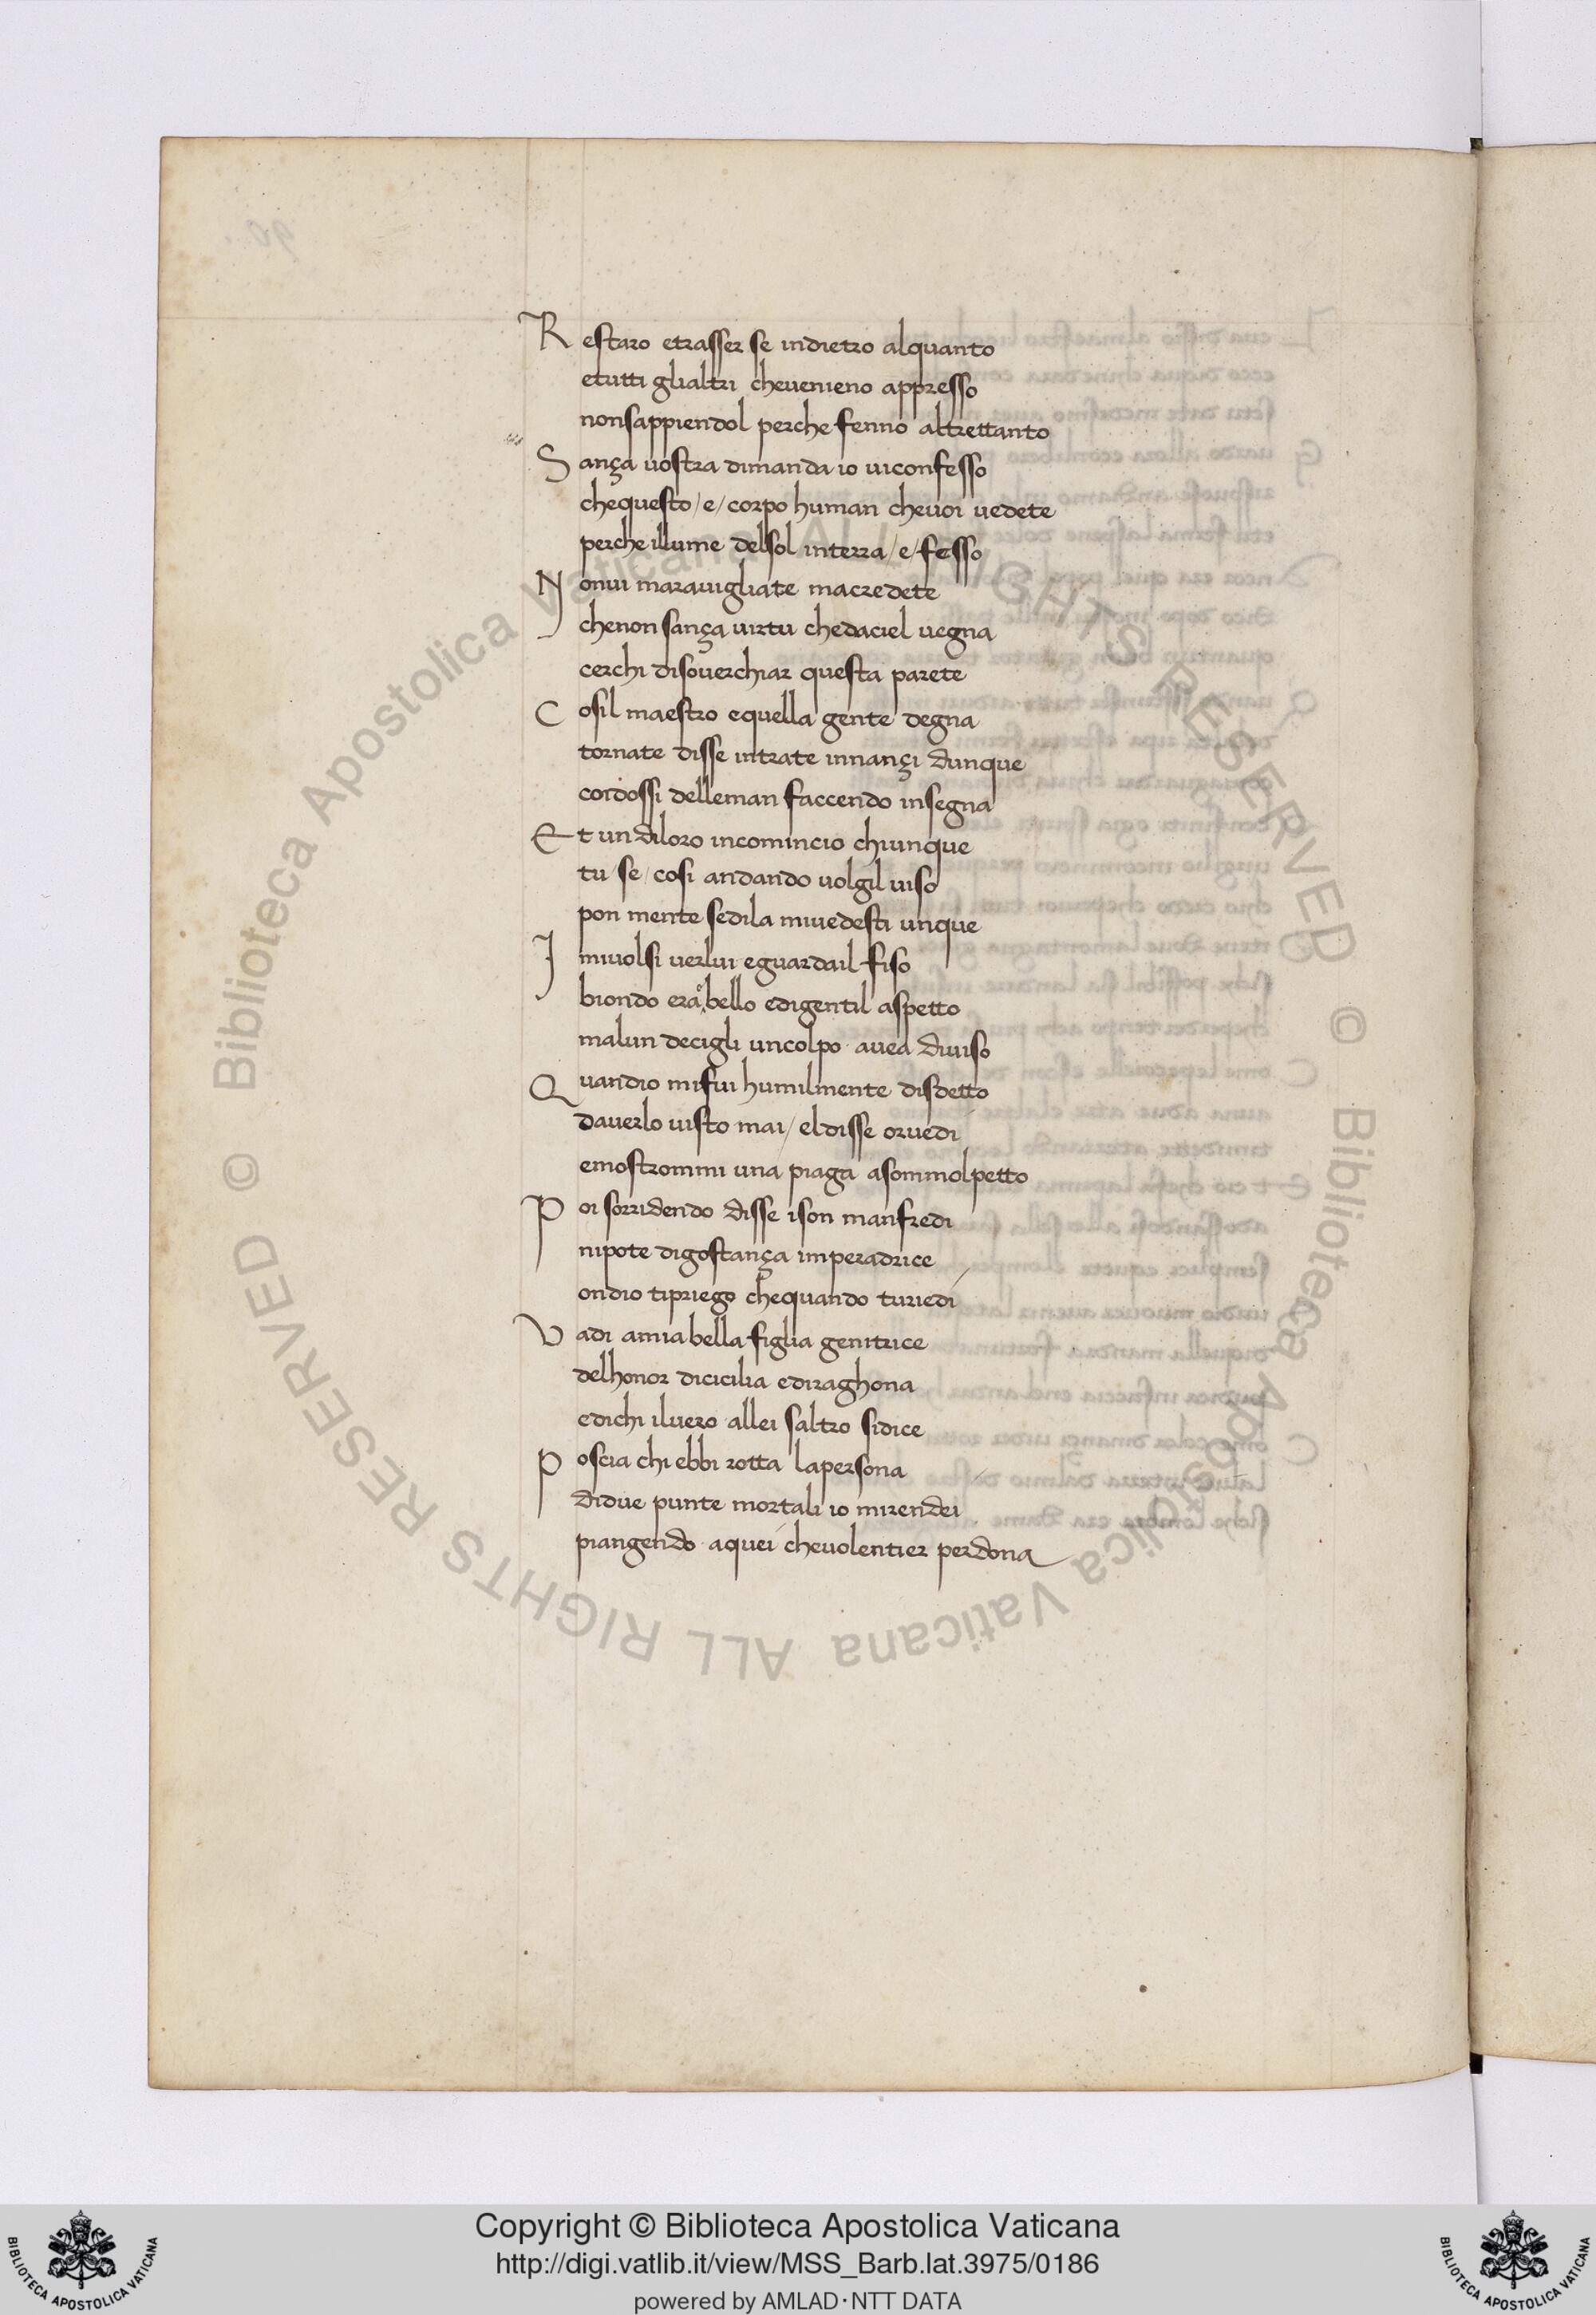 Restaro etrasser se indietro alquanto
etutti glialtri chevenieno appresso
nonsappiendol perche fenno altrettanto
Sança uostra dimanda io uiconfesso
chequesto/e/corpo human cheuoi uedete
perche illume delsol interra/e/fesso
Nonui marauigliate macredete
chenon sança uirtu chedaciel uegna
cerchi disouerchiar questa parete
Cosil maestro equella gente degna
tornate disse intrate innançi dunque
coidossi delleman faccendo insegna
Et un diloro incomincio chiunque
tu/se/cosi andando uolgil uiso
pon mente sedila miuedesti unque
I miuolsi uerlui eguardail fiso
biondo era bello edigentil aspetto
malun decigli uncolpo auea diuiso
Quandio misui humilmente disdetto
dauerlo uisto mai/eldisse oruedi
emostrommi una piaga asommolpetto
Poi sorridendo disse ison manfredi
nipote digostança imperadrice
ondio tipriego chequando turiedi
Vadi amiabella figlia genitrice
delhonor dicicilia ediraghona
edichi iluero allei saltro sidice
Poscia chi ebbi rotta lapersona
didue punte mortali io mirendei
piangendo aquei cheuolentier perdona
© Biblioteca Apostolica Vaticana ALL RIGHTS RESERVED © Biblioteca Apostolica Vaticana ALL RIGHTS RESERVED
Copyright © Biblioteca Apostolica Vaticana
http://digi.vatlib.it/view/MSS_Barb.lat.3975/0186
powered by AMLAD·NTT DATA
BIBLIOTECA APOSTOLICA VATICANA
BIBLIOTECA APOSTOLICA VATICANA